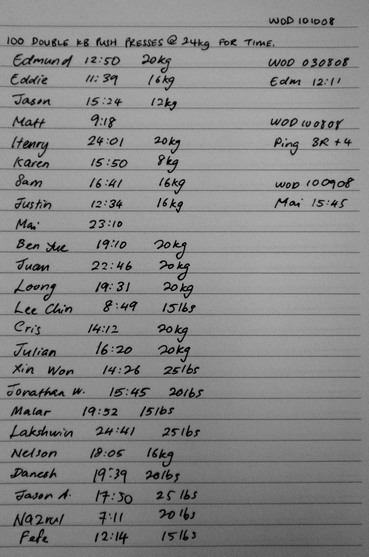 WOD 101008
100 DOUBLE KB PUSH PRESSES @ 24kg FOR TIME.
Edmund 12:50 20kg WOD 030808
Eddie 11:39 16kg Edm 12:11
Jason 15:24 12kg
Matt 9:18 WOD 100808
Henry 24:01 20kg Ping 8R +4
Karen 15:50 8kg
Sam 16:41 16kg WOD 100908
Justin 12:34 16kg Mai 15:45
Mai 23:10
Ben Yue 19:10 20kg
Juan 22:46 20kg
Loong 19:31 20kg
Lee Chin 8:49 15lbs
Cris 14:12 20kg
Julian 16:20 20kg
Xin Won 14:26 25lbs
Jonathan W. 15:45 20lbs
Malar 19:52 15lbs
Lakshwin 24:41 25lbs
Nelson 18:05 16kg
Danesh 19:39 20lbs
Jason A. 17:30 25lbs
Nazrul 7:11 20lbs
Fefe 12:14 15lbs